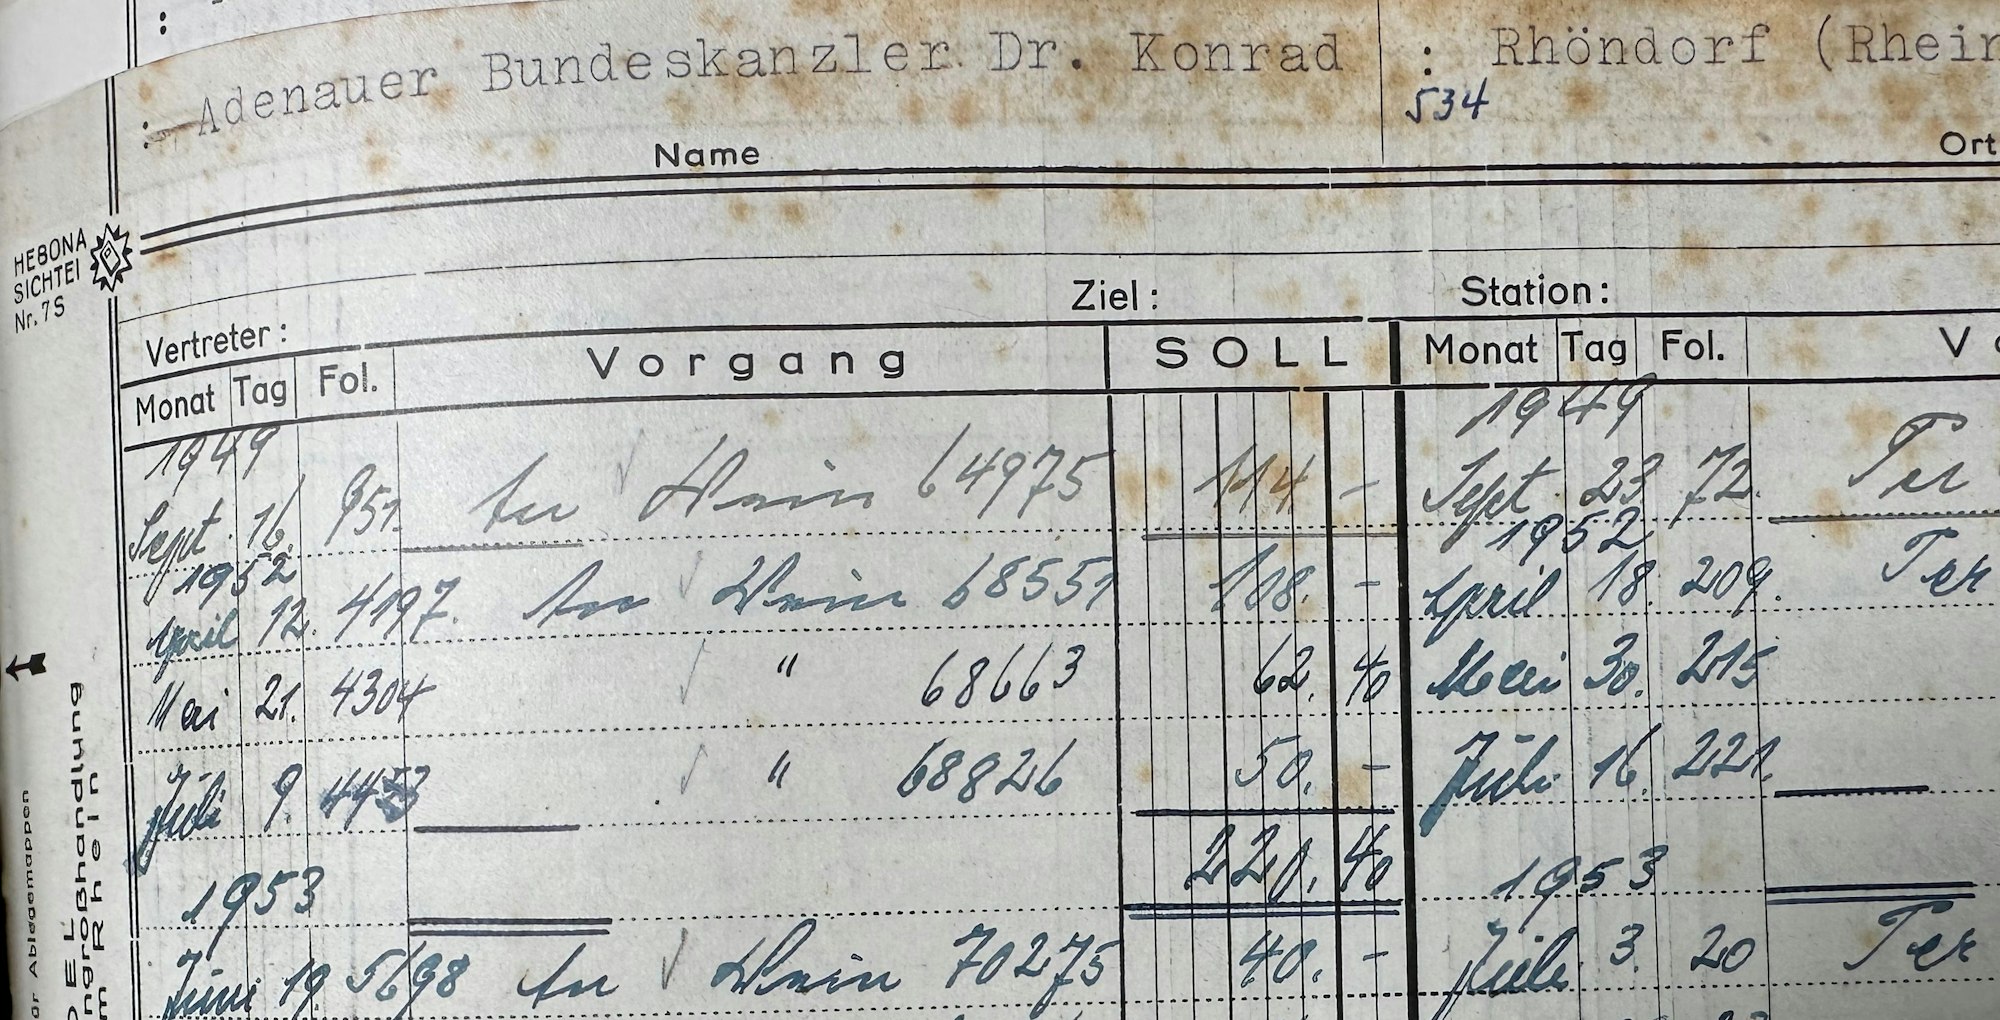 : Adenauer Bundeskanzler Dr. Konrad : Rhöndorf (Rhein
534
Name Ort
HEBONA
SICHTEI
Nr. 7S
Vertreter: Ziel: Station:
Monat Tag Fol. Vorgang SOLL Monat Tag Fol. V
1949 1949
Sept. 16. 951. An Wein 64975 114 - Sept. 23 72. Per
1952 1952
April 12. 4197. An Wein 68551 108. - April 18. 209. Per
Mai 21. 4304 " 68663 62. 40 Mai 30. 215
Juli 9. 4453 " 68826 50. - Juli 16. 221.
220. 40
1953 1953
Juni 19 5698 An Wein 70275 40. - Juli 3. 20 Per
ngroßhandlung
m Rhein
ür Ablegemappen